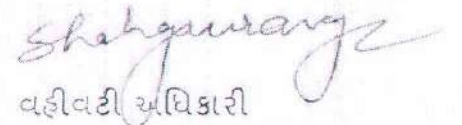 Shahgaurang
વહીવટી અધિકારી